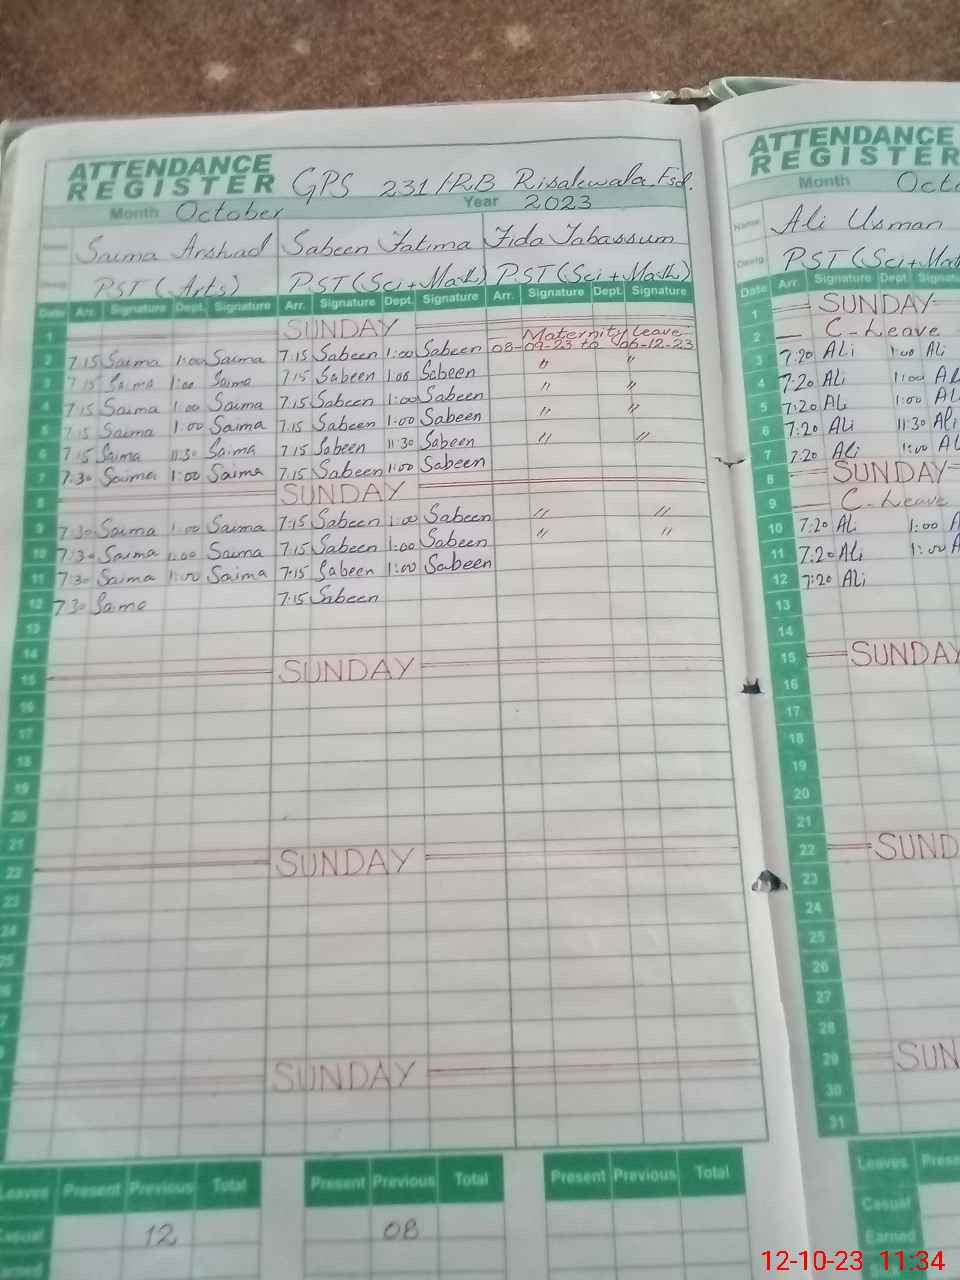 ATTENDANCE
REGISTER GPS 231/RB Risalewala Fsd.
Month October Year 2023
Name Saima Arshad Sabeen Fatima Fida Tabassum
Desig PST (Arts) PST (Sci+Math) PST (Sci+Math)
Date Arr. Signature Dept. Signature Arr. Signature Dept. Signature Arr. Signature Dept. Signature
1 SUNDAY Maternity Leave
2 7:15 Saima 1:00 Saima 7:15 Sabeen 1:00 Sabeen 08-09-23 to 06-12-23
3 7:15 Saima 1:00 Saima 7:15 Sabeen 1:00 Sabeen " "
4 7:15 Saima 1:00 Saima 7:15 Sabeen 1:00 Sabeen " "
5 7:15 Saima 1:00 Saima 7:15 Sabeen 1:00 Sabeen " "
6 7:15 Saima 11:30 Saima 7:15 Sabeen 11:30 Sabeen " "
7 7:30 Saima 1:00 Saima 7:15 Sabeen 1:00 Sabeen
8 SUNDAY
9 7:30 Saima 1:00 Saima 7:15 Sabeen 1:00 Sabeen " "
10 7:30 Saima 1:00 Saima 7:15 Sabeen 1:00 Sabeen " "
11 7:30 Saima 1:00 Saima 7:15 Sabeen 1:00 Sabeen
12 7:30 Saima 7:15 Sabeen
13
14
15 SUNDAY
16
17
18
19
20
21
22 SUNDAY
23
24
25
SUNDAY
Leaves Present Previous Total Present Previous Total Present Previous Total
Casual 12 08
Earned
ATTENDANCE
REGISTER
Month
Name Ali Usman
Desig
Date Arr Signature Dept.
1 SUNDAY
2 C-Leave
3 7:20 Ali 1:00 Ali
4 7:20 Ali 1:00
5 7:20 Ali 1:00
6 7:20 Ali 11:30 Ali
7 7:20 Ali 1:00
8 SUNDAY
9 C-Leave
10 7:20 Ali 1:00
11 7:20 Ali 1:00
12 7:20 Ali
13
14
15 SUNDAY
16
17
18
19
20
21
22
23
24
25
26
27
28
29
30
31
Leaves
Casual
Earned
12-10-23 11:34